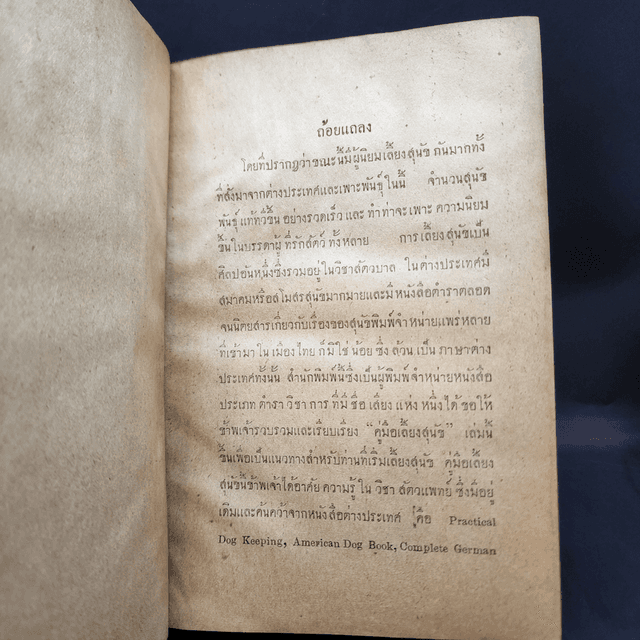 ถ้อยแถลง
โดยที่ปรากฏว่าขณะนี้มีผู้นิยมเลี้ยงสุนัข กันมากทั้ง
ที่สั่งมาจากต่างประเทศและเพาะพันธุ์ ในนี้ จำนวนสุนัข
พันธุ์ แท้ทวีขึ้น อย่างรวดเร็ว และ ทำท่าจะเพาะ ความนิยม
ขึ้นในบรรดาผู้ ที่รักสัตว์ ทั้งหลาย การเลี้ยงสุนัขเป็น
ศิลปอันหนึ่งซึ่งรวมอยู่ ในวิชาสัตวบาล ในต่างประเทศมี
สมาคมหรือสโมสรสุนัขมากมายและมีหนังสือตำราตลอด
จนนิตยสารเกี่ยวกับเรื่องของสุนัขพิมพ์จำหน่ายแพร่หลาย
ที่เข้ามา ใน เมือง ไทย ก็ มิ ใช่ น้อย ซึ่ง ล้วน เป็น ภาษาต่าง
ประเทศทั้งนั้น สำนักพิมพ์นี้ซึ่งเป็นผู้พิมพ์จำหน่ายหนังสือ
ประเภท ตำรา วิชา การ ที่ มี ชื่อ เสียง แห่ง หนึ่ง ได้ ขอ ให้
ข้าพเจ้ารวบรวมและเรียบเรียง “คู่มือเลี้ยงสุนัข” เล่มนี้
ขึ้นเพื่อเป็นแนวทางสำหรับท่านที่เริ่มเลี้ยงสุนัข คู่มือเลี้ยง
สุนัขนี้ข้าพเจ้าได้อาศัย ความรู้ ใน วิชา สัตวแพทย์ ซึ่งมีอยู่
เดิมและค้นคว้าจากหนังสือต่างประเทศ คือ Practical
Dog Keeping, American Dog Book, Complete German